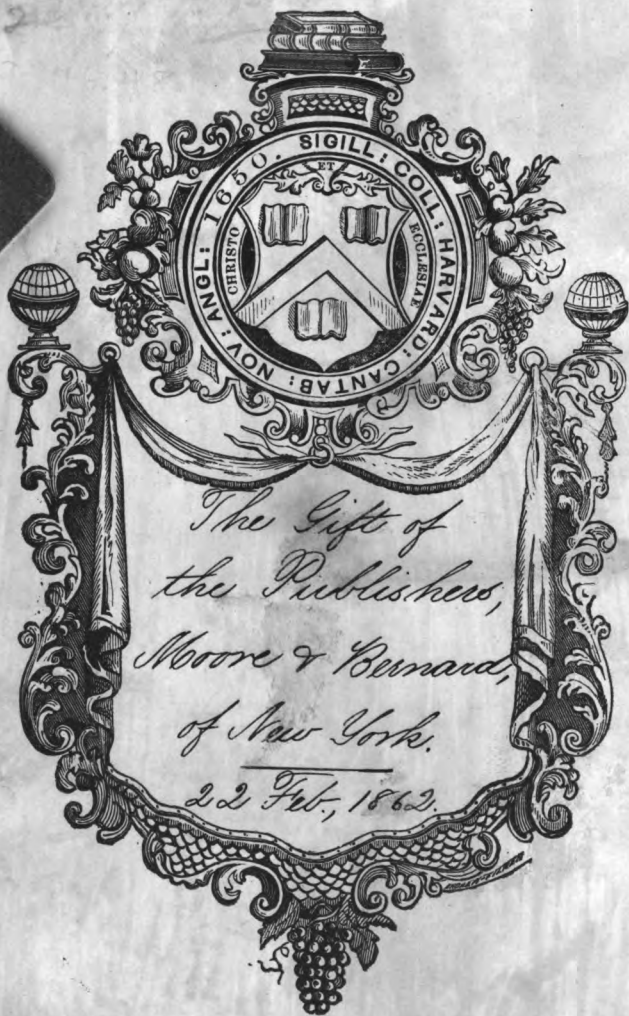 SIGILL: COLL: HARVARD: CANTAB: NOV: ANGL: 1650.
CHRISTO ET ECCLESIAE
The Gift of
the Publishers,
Moore & Bernard,
of New York.
22 Feb., 1862.